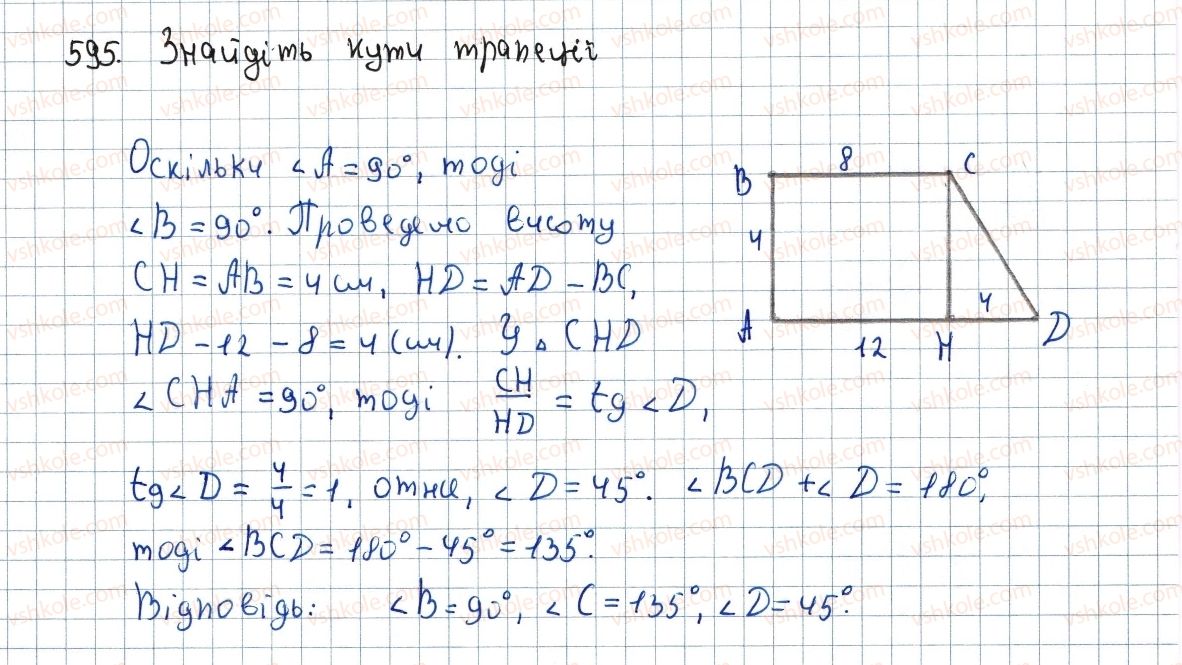 595. Знайдіть кути трапеції
Оскільки ∠A = 90°, тоді
∠B = 90°. Проведемо висоту
CH = AB = 4 см, HD = AD – BC,
HD – 12 – 8 = 4 (см). У △ CHD
∠CHA = 90°, тоді CH/HD = tg ∠D,
tg ∠D = 4/4 = 1, отже, ∠D = 45°. ∠BCD + ∠D = 180°,
тоді ∠BCD = 180° – 45° = 135°.
Відповідь: ∠B = 90°, ∠C = 135°, ∠D = 45°.
B 8 C
4
4
A 12 H D
vshkole.com